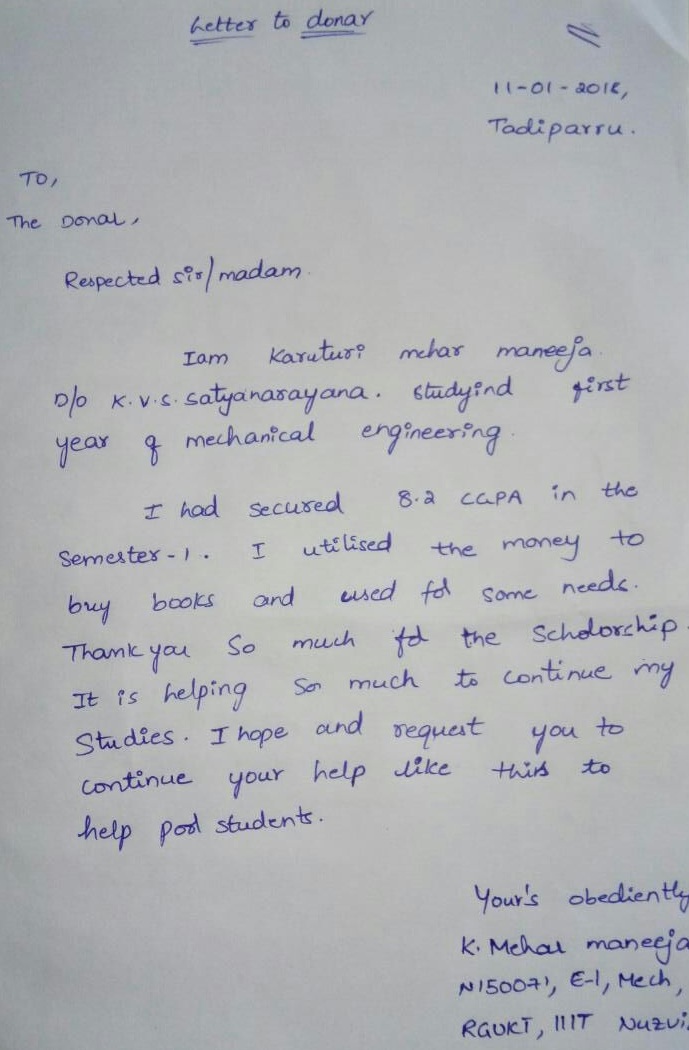 Letter to donar
11-01-2018,
Tadiparru.
TO,
The Donar,
Respected sir/madam.
Iam Karuturi mehar maneeja.
D/o K.V.S. Satyanarayana. studyind first
year of mechanical engineering.
I had secured 8.2 CGPA in the
Semester-1. I utilised the money to
buy books and used for some needs.
Thank you So much for the Scholorship.
It is helping so much to continue my
Studies. I hope and request you to
continue your help like this to
help poor students.
Your's obediently
K. Mehar maneeja
N150071, E-1, Mech,
RGUKT, IIIT Nuzvi